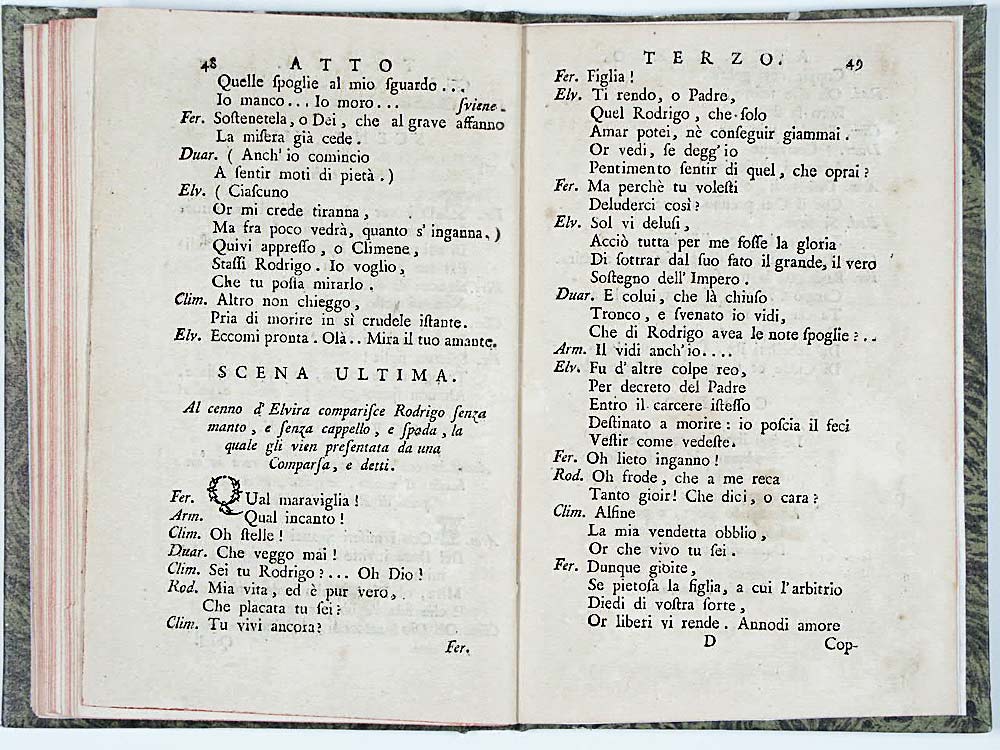 48 ATTO
Quelle ſpoglie al mio ſguardo . . .
Io manco . . . Io moro . . . ſviene.
Fer. Soſtenetela, o Dei, che al grave affanno
La miſera già cede .
Duar. ( Anch' io comincio
A ſentir moti di pietà . )
Elv. ( Ciaſcuno
Or mi crede tiranna ,
Ma fra poco vedrà, quanto s' inganna. )
Quivi appreſſo, o Climene,
Staſſi Rodrigo. Io voglio,
Che tu poſſa mirarlo .
Clim. Altro non chieggo,
Pria di morire in sì crudele iſtante.
Elv. Eccomi pronta . Olà . . Mira il tuo amante.
SCENA ULTIMA.
Al cenno d' Elvira compariſce Rodrigo ſenza
manto , e ſenza cappello , e ſpada , la
quale gli vien preſentata da una
Comparſa, e detti.
Fer. QUal maraviglia !
Arm. Qual incanto !
Clim. Oh ſtelle !
Duar. Che veggo mai !
Clim. Sei tu Rodrigo ? . . . Oh Dio !
Rod. Mia vita, ed è pur vero,
Che placata tu ſei?
Clim. Tu vivi ancora?
Fer.
TERZO. 49
Fer. Figlia !
Elv. Ti rendo, o Padre,
Quel Rodrigo , che ſolo
Amar potei, nè conſeguir giammai .
Or vedi, ſe degg' io
Pentimento ſentir di quel, che oprai ?
Fer. Ma perchè tu voleſti
Deluderci così ?
Elv. Sol vi deluſi,
Acciò tutta per me foſſe la gloria
Di ſottrar dal ſuo fato il grande, il vero
Soſtegno dell' Impero .
Duar. E colui, che là chiuſo
Tronco, e ſvenato io vidi,
Che di Rodrigo avea le note ſpoglie ? . .
Arm. Il vidi anch' io . . . .
Elv. Fu d' altre colpe reo,
Per decreto del Padre
Entro il carcere iſteſſo
Deſtinato a morire : io poſcia il feci
Veſtir come vedeſte.
Fer. Oh lieto inganno !
Rod. Oh frode, che a me reca
Tanto gioir! Che dici, o cara ?
Clim. Alfine
La mia vendetta obblio,
Or che vivo tu ſei .
Fer. Dunque gioite,
Se pietoſa la figlia, a cui l'arbitrio
Diedi di voſtra ſorte,
Or liberi vi rende. Annodi amore
D Cop-